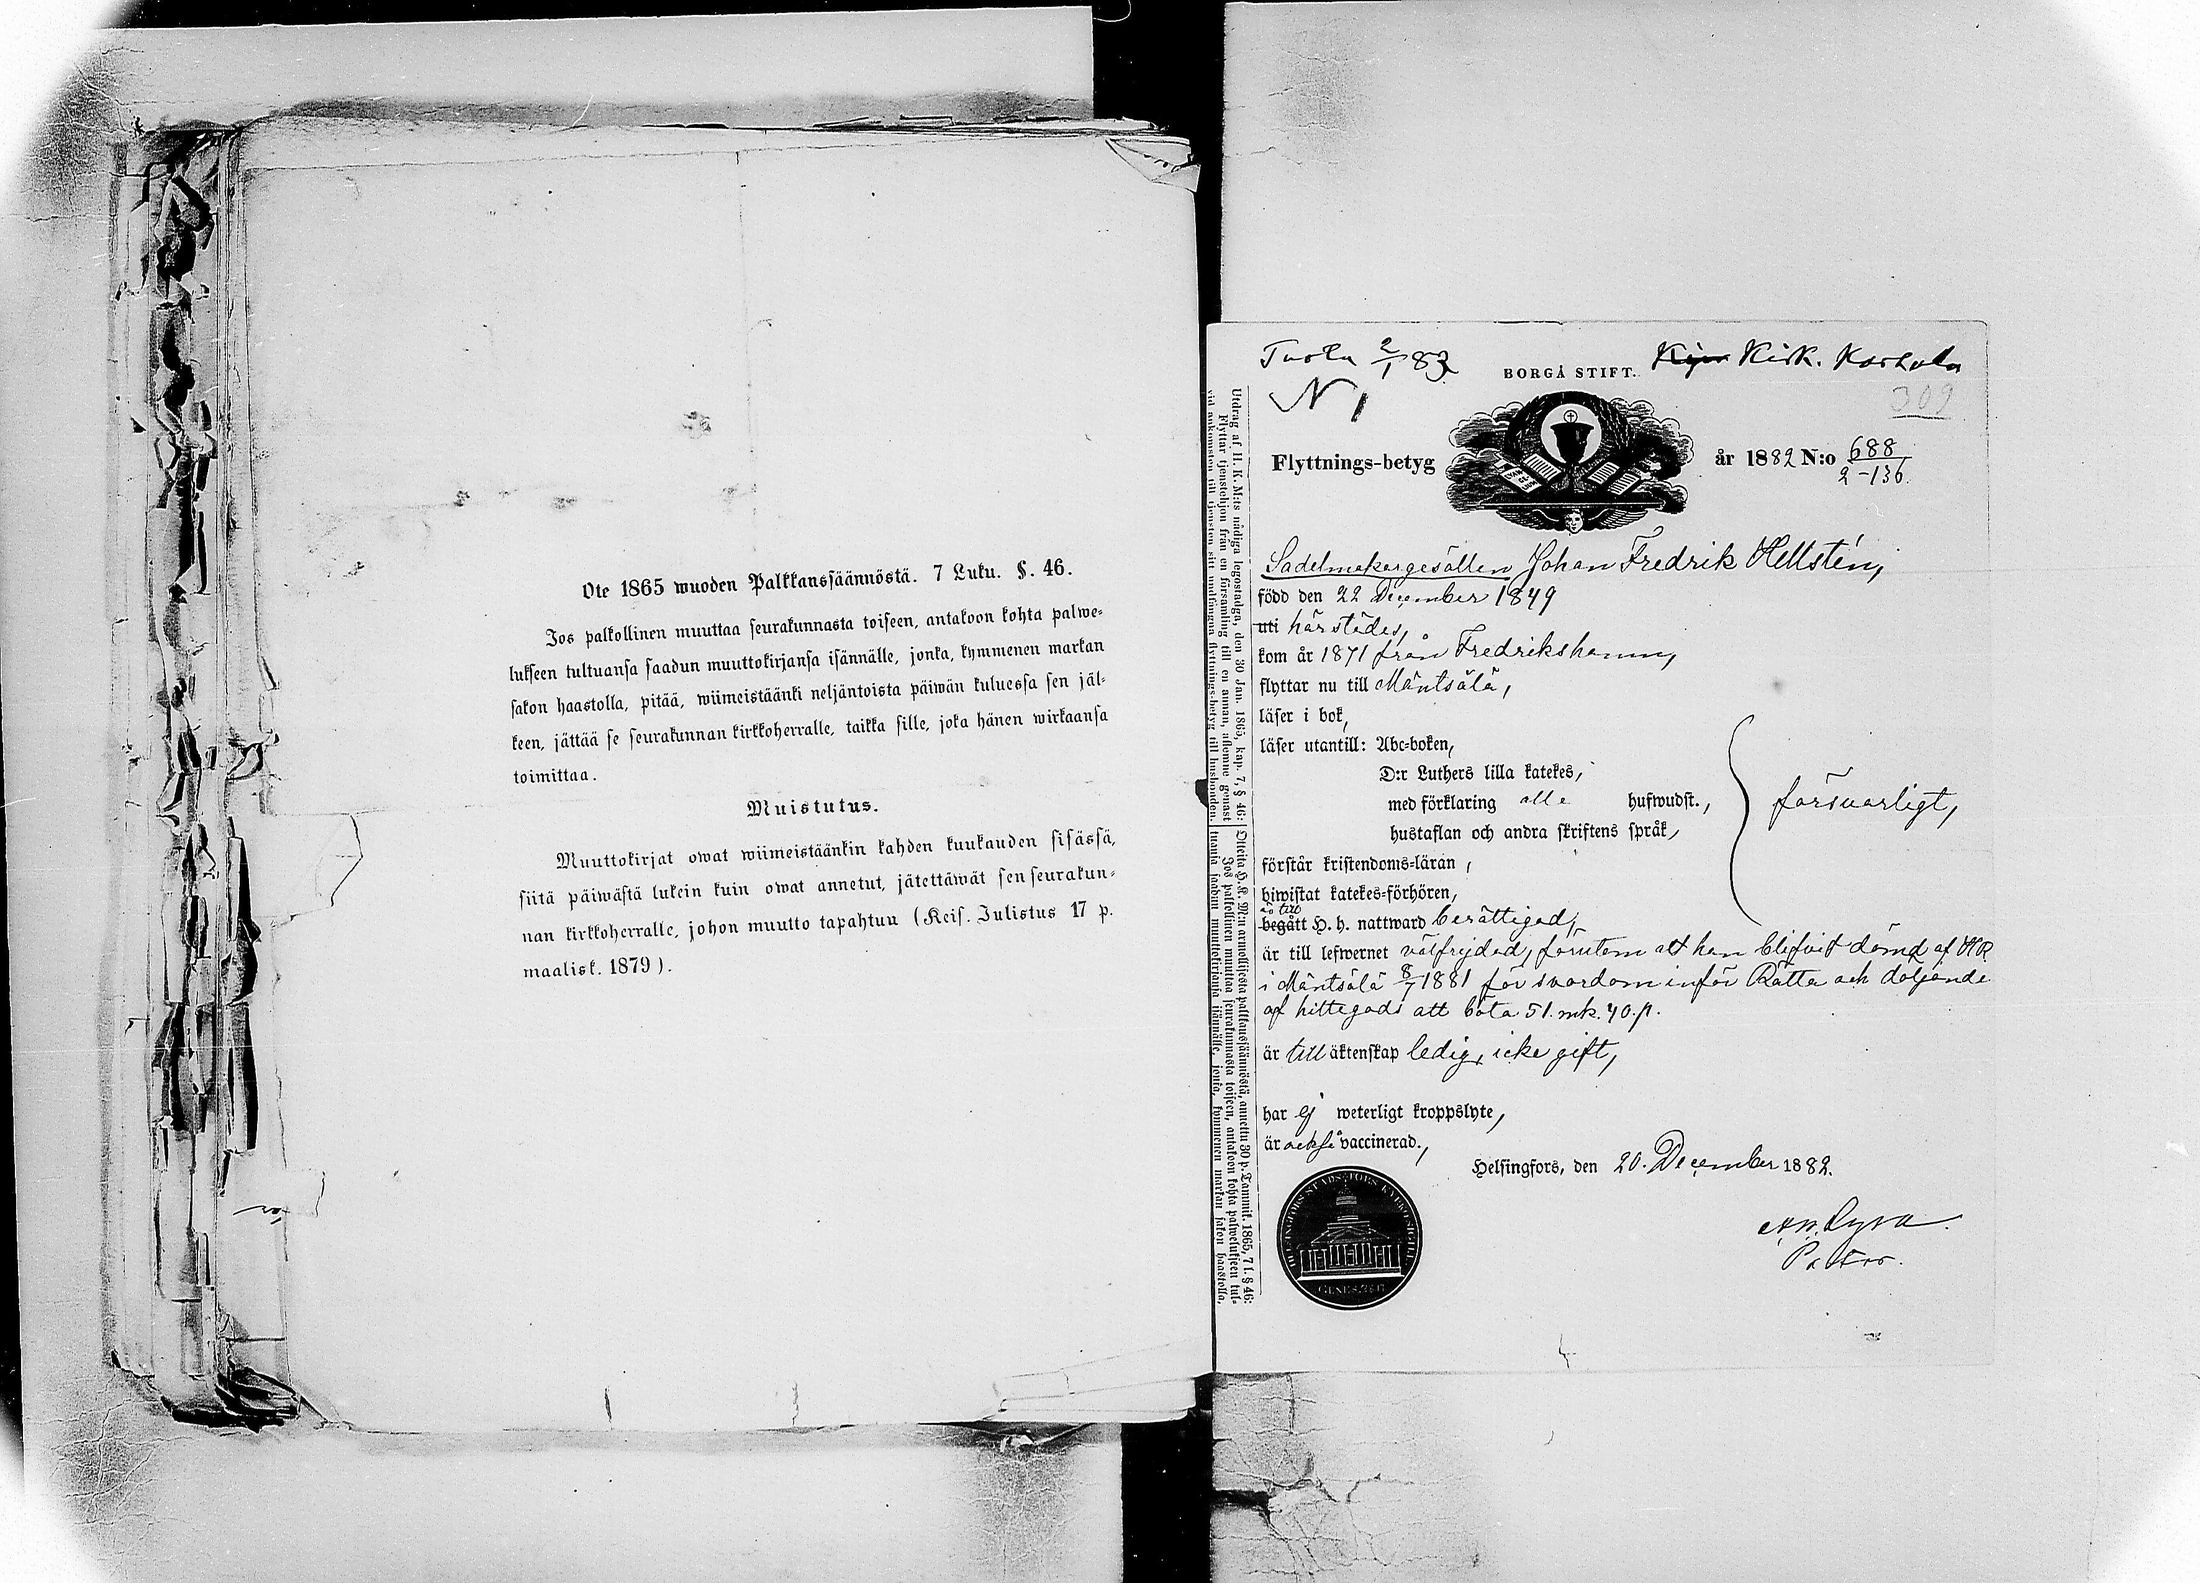 Ote 1865 wuoden Palkkanssäännöstä. 7 Luku. §. 46.
Jos palkollinen muuttaa seurakunnasta toiseen, antakoon kohta palwe-
lukseen tultuansa saadun muuttokirjansa isännälle, jonka, kymmenen markan
sakon haastolla, pitää, wiimeistäänki neljäntoista päiwän kuluessa sen jäl-
keen, jättää se seurakunnan kirkkoherralle, taikka sille, joka hänen wirkaansa
toimittaa.
Muistutus.
Muuttokirjat owat wiimeistäänkin kahden kuukauden sisässä,
siitä päiwästä lukein kuin owat annetut, jätettäwät sen seurakun-
nan kirkkoherralle, johon muutto tapahtuu (Keis. Julistus 17 p.
maalisk. 1879).
2/1 83
BORGÅ STIFT.
Kirk.
N 1
309
Flyttnings-betyg
år 1882 N:o 688
2-136.
Sadelmakaregesällen Johan Fredrik Hellstén,
född den 22 December 1849
uti härstädes,
kom år 1871 från Fredrikshamn,
flyttar nu till Mäntsälä,
läser i bok,
läser utantill: Abc-boken,
D:r Luthers lilla katekes,
med förklaring alla hufwudst.,
hustaflan och andra skriftens språk,
försvarligt,
förstår kristendoms-läran,
biwistat katekes-förhören,
är till
begått H. h. nattward berättigad,
är till lefwernet välfrejdad, förutom att han blifvit dömd af HR
i Mäntsälä 8/7 1881 för svordom inför Rätta och döljande
af hittegods att böta 51. mk. 40. p.
är till äktenskap ledig, icke gift,
har ej weterligt kroppslyte,
är också vaccinerad.,
Helsingfors, den 20. December 1882.
Pastor.
Utdrag af H. K. M:ts nådiga legostadga, den 30 Jan. 1865, kap. 7, § 46:
Flyttar tjenstehjon från en församling till en annan, aflemne genast
vid ankomsten till tjensten sitt undfångna flyttnings-betyg till husbonden.
Otteita H. K. M:n armollisesta palkkaussäännöstä, annettu 30 p. Tammik. 1865, 7 l. § 46:
Jos palkollinen muuttaa seurakunnasta toiseen, antakoon kohta palwelukseen tul-
tuansa saadun muuttokirjansa isännälle, jonka, kymmenen markan sakon haastolla,